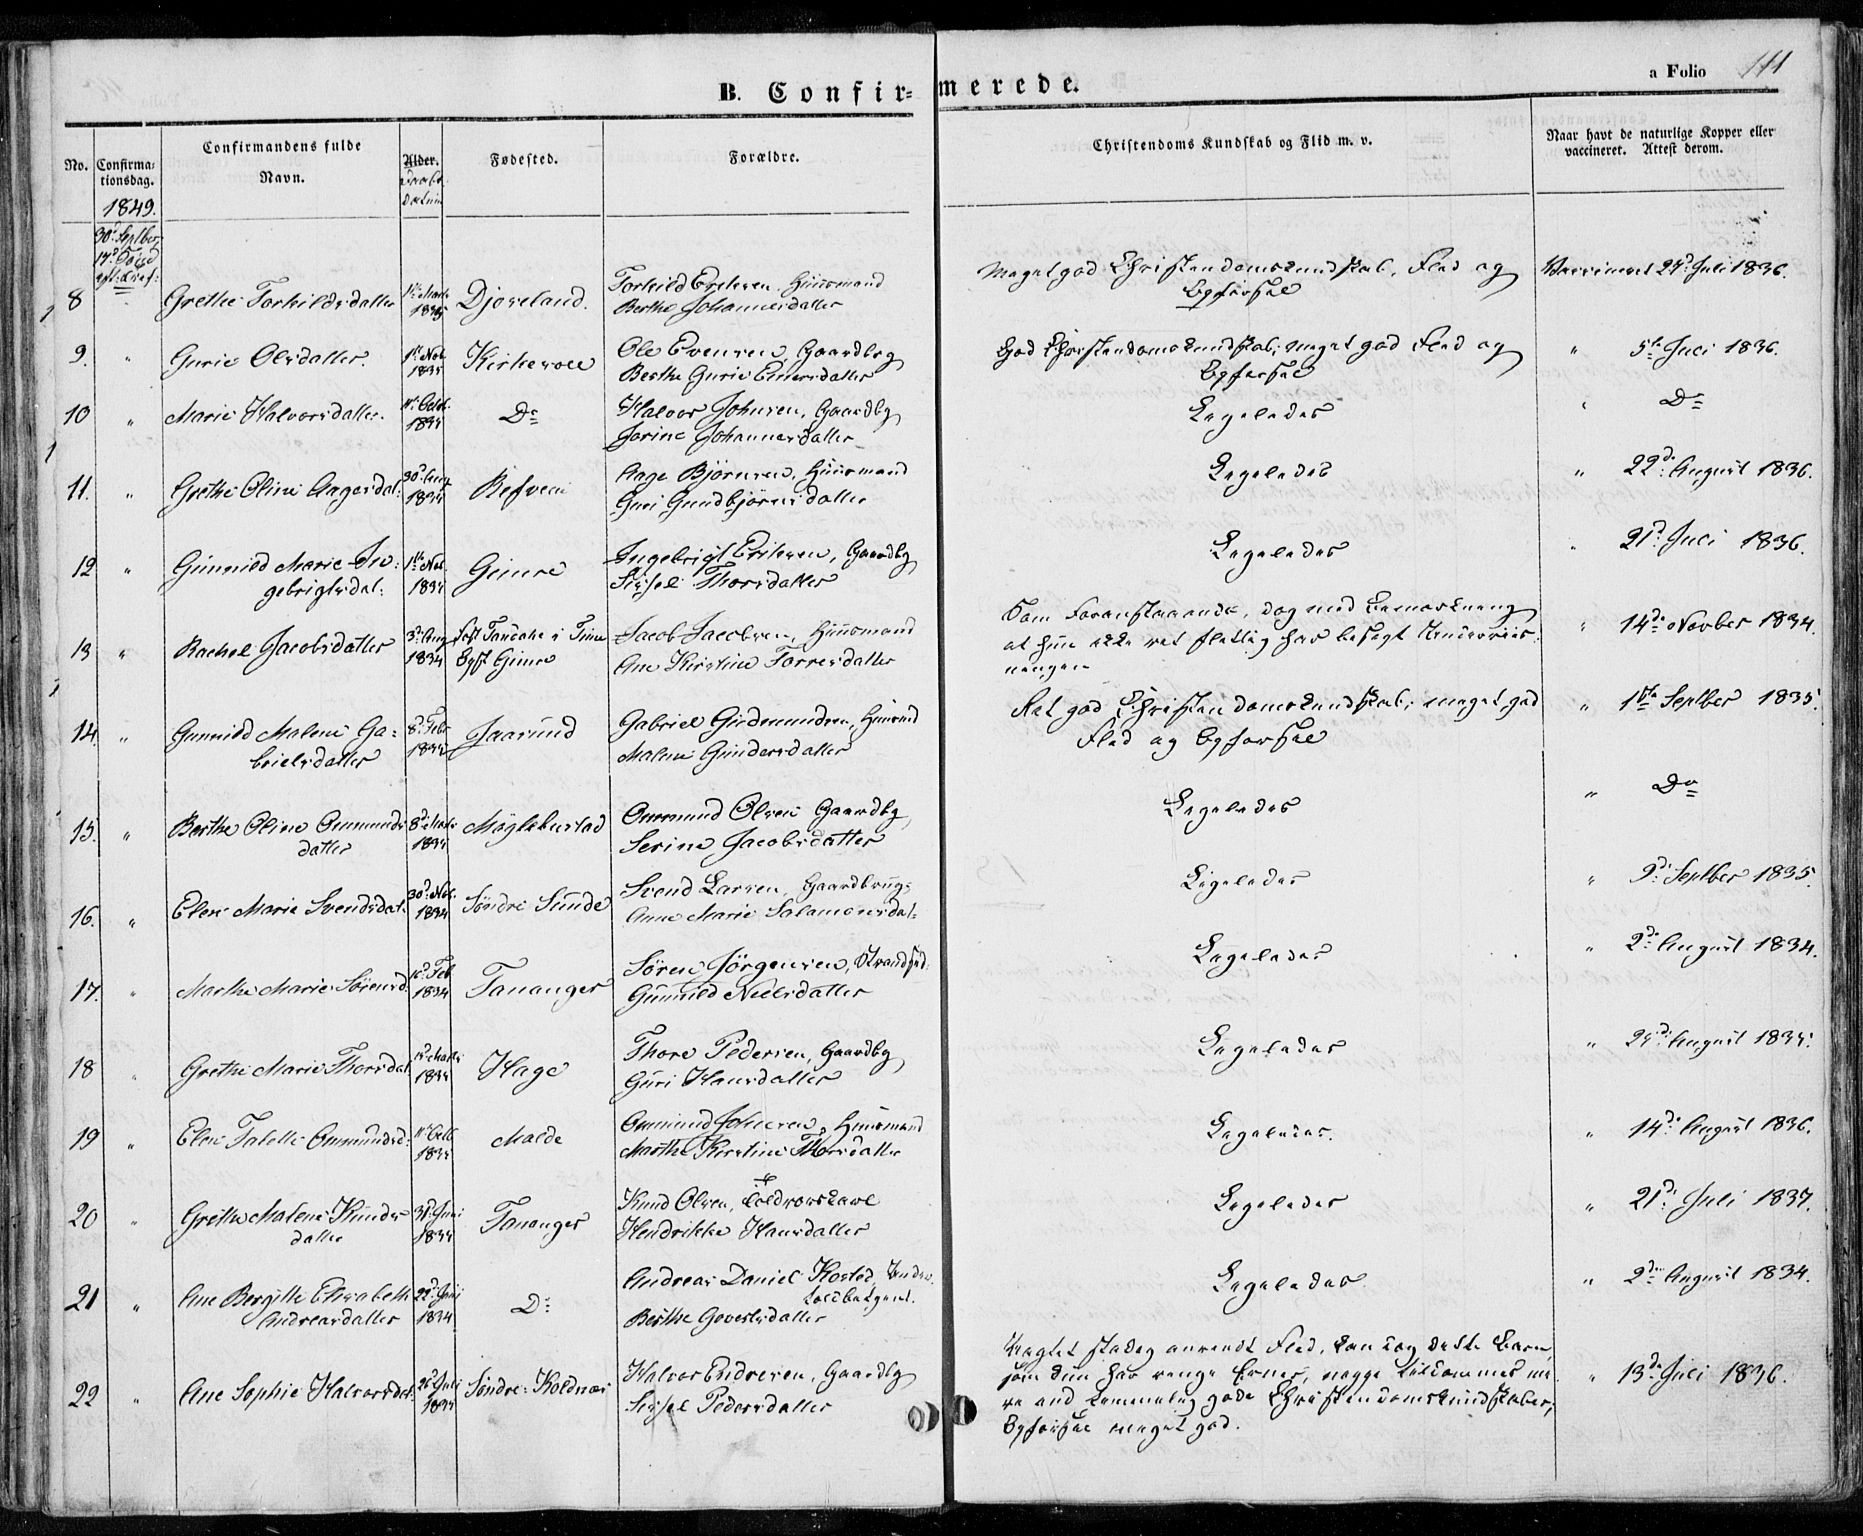 B. Confirmerede.
a Folio 111
No.
Confirmationsdag.
Confirmandens fulde Navn.
Alder.
Fødested.
Forældre.
Christendoms Kundskab og Flid m. v.
Naar havt de naturlige Kopper eller vaccineret. Attest derom.
1849.
30d Septber
8 Grethe Torkildsdatter 1835 Djoreland. Torkild Erik­sen Huusmand
Berthe Johannesdatter
Meget god Christendomskundskab, Flid og Opførsel
Vaccineret 29d Juli 1836.
9. " Gurie Olsdatter. 1ste Nov 1834 Kirkevold Ole Evensen, Gaardbrg
Berthe Gurie Einersdatter
God Christendomskundskab; meget god Flid og Opførsel
" 5te Juli 1836.
10 " Marie Halvorsdatter. 1834 Do Halvor Johnsen, Gaardbg
Jorine Johannesdatter
Ligeledes
" Do
11. " Grethe Oline Aagesdat: 30d Aug 1834 Refven Aage Bjørnsen, Huusmand
Guri Gundbjørnsdatter
Ligeledes
" 22de August 1836.
12 " Gunnild Marie In-
gebrigtsdat: 1ste Nov. 1834 Gimre Ingebrigt Eriksen, Gaardbg
Sissel Thorsdatter
Ligeledes
" 21d Juli 1836.
13 " Rachel Jacobsdatter 3d Aug 1834 født Tandche i Time
Opft Gimre
Jacob Jacobsen, Huusmand
Ane Kirstine Torresdatter
Som Foranstaaende, dog med Bemærkning
at hun ikke ret flittig har besøgt Underviis-
ningen
" 14de Novber 1834.
14. " Gunnild Malene Ga-
brielsdatter 8d Feb 1835 Jaasund Gabriel Gudmundsen, Huusmd
Malene Gundersdatter
Ret god Christendomskundskab; meget god
Flid og Opførsel
" 1ste Septber 1835.
15. " Berthe Oline Ommunds
datter 8d Marts 1834 Møglebustad Ommund Olsen Gaardbg
Serine Jacobsdatter
Ligeledes
" Do
16. " Elen Marie Svendsdat. 30d Nov. 1834 Søndre Sunde Svend Larsen, Gaardbrug:
Anne Marie Salamonsdat-
Ligeledes
" 9d Septber 1835.
17. " Marthe Marie Sørensd. 16d Feb 1834 Tananger Søren Jørgensen, Strandsid:
Gunnild Nielsdatter
Ligeledes
" 2d August 1834.
18 " Grethe Marie Thorsdat 1834 Hage Thore Pedersen, Gaardbg
Guri Hansdatter
Ligeledes
" 29d August 1834.
19 " Elen Talette Ommundsd: 1834 Malde Ommund Johnsen, Huusmand
Marthe Kirstine Thorsdatter
Ligeledes.
" 14de August 1836.
20 " Grethe Malene Knuds
datter 1834 Tananger Knud Olsen, Toldroerskarl
Hendrikke Hansdatter
Ligeledes
" 21d Juli 1837.
21 " Ane Bergitte Elisabeth
Andreasdatter 22d Juni 1834 Do Andreas Daniel Kosted, Under-
toldbetjent.
Berthe Govertsdatter
Ligeledes.
" 2den August 1834.
22 " Ane Sophie Halvorsdat: 26d Juli 1834 Søndre Koldnæs Halvor Endresen, Gaardbg
Sissel Pedersdatter
Uagtet stadig anvendt Flid, kan dog dette Barn,
som kun har ringe Evner, neppe tilkommes me-
re end temmelig gode Christendomskundskaber;
Opførsel meget god.
" 13de Juli 1836.